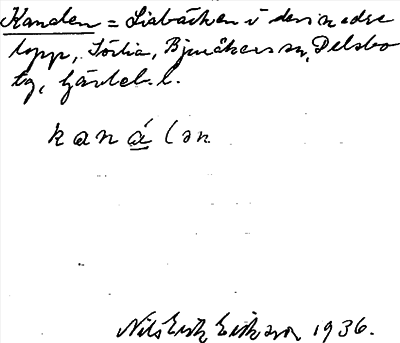 Kanalen = Siabäcken i dess nedre
lopp, Sörlia, Bjuråkers sn, Delsbo
tg, Gävleb. l.
kanálən
Nils Erik Eriksson 1936.